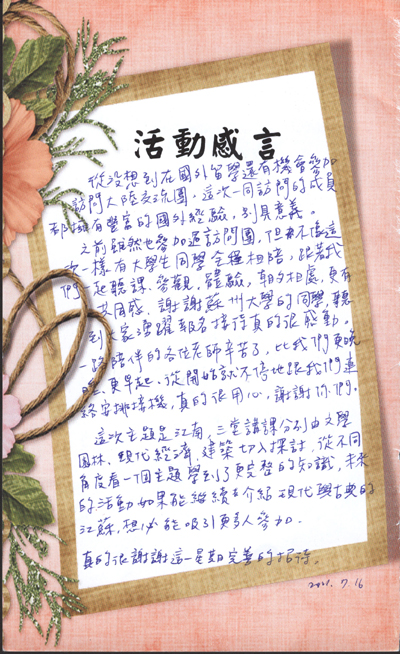 活動感言
從沒想到在國外留學還有機會參加
訪問大陸交流團，這次一同訪問的成員
都擁有豐富的國外經驗，別具意義。
之前雖然也參加過訪問團，但都不像這
次一樣有大學生同學全程相陪，跟著我
們一起聽課、參觀、體驗，朝夕相處，更有
共同感。謝謝蘇州大學的同學，聽
到大家踴躍報名接待真的很感動。
一路陪伴的各位老師辛苦了，比我們更晚
睡、更早起。從開始就不停地跟我們連
絡安排接機，真的很用心，謝謝你們。
這次主題是江南，三堂講課分別由文學
園林、現代經濟、建築切入探討，從不同
角度看一個主題學到了更完整的知識，未來
的活動如果能繼續介紹現代與古典的
江蘇，想必能吸引更多人參加。
真的很謝謝這一星期完善的招待。
7.16